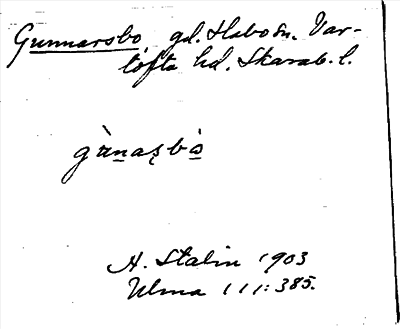 Gunnarsbo gd. Habo sn. Var-
tofta hd. Skarab. l.
gùnaʂbò
H. Stalin 1903
Ulma 111:385.